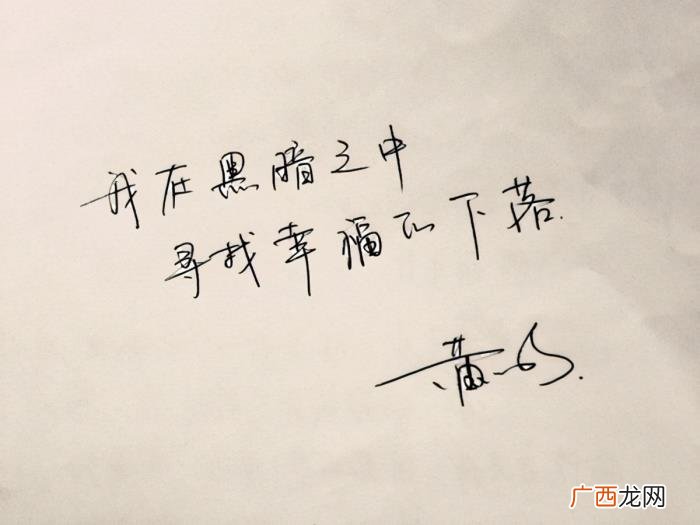 我在黑暗之中
寻找幸福的下落.
广西龙网